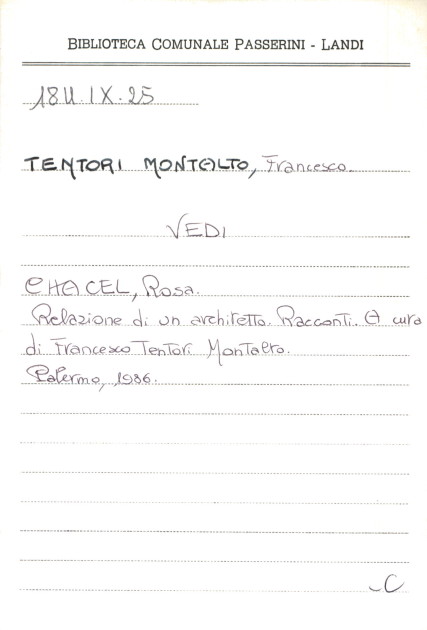 BIBLIOTECA COMUNALE PASSERINI - LANDI
18U.IX.25
TENTORI MONTALTO, Francesco.
VEDI
CHACEL, Rosa.
Relazione di un architetto. Racconti. A cura
di Francesco Tentori Montalto.
Palermo, 1986.
C